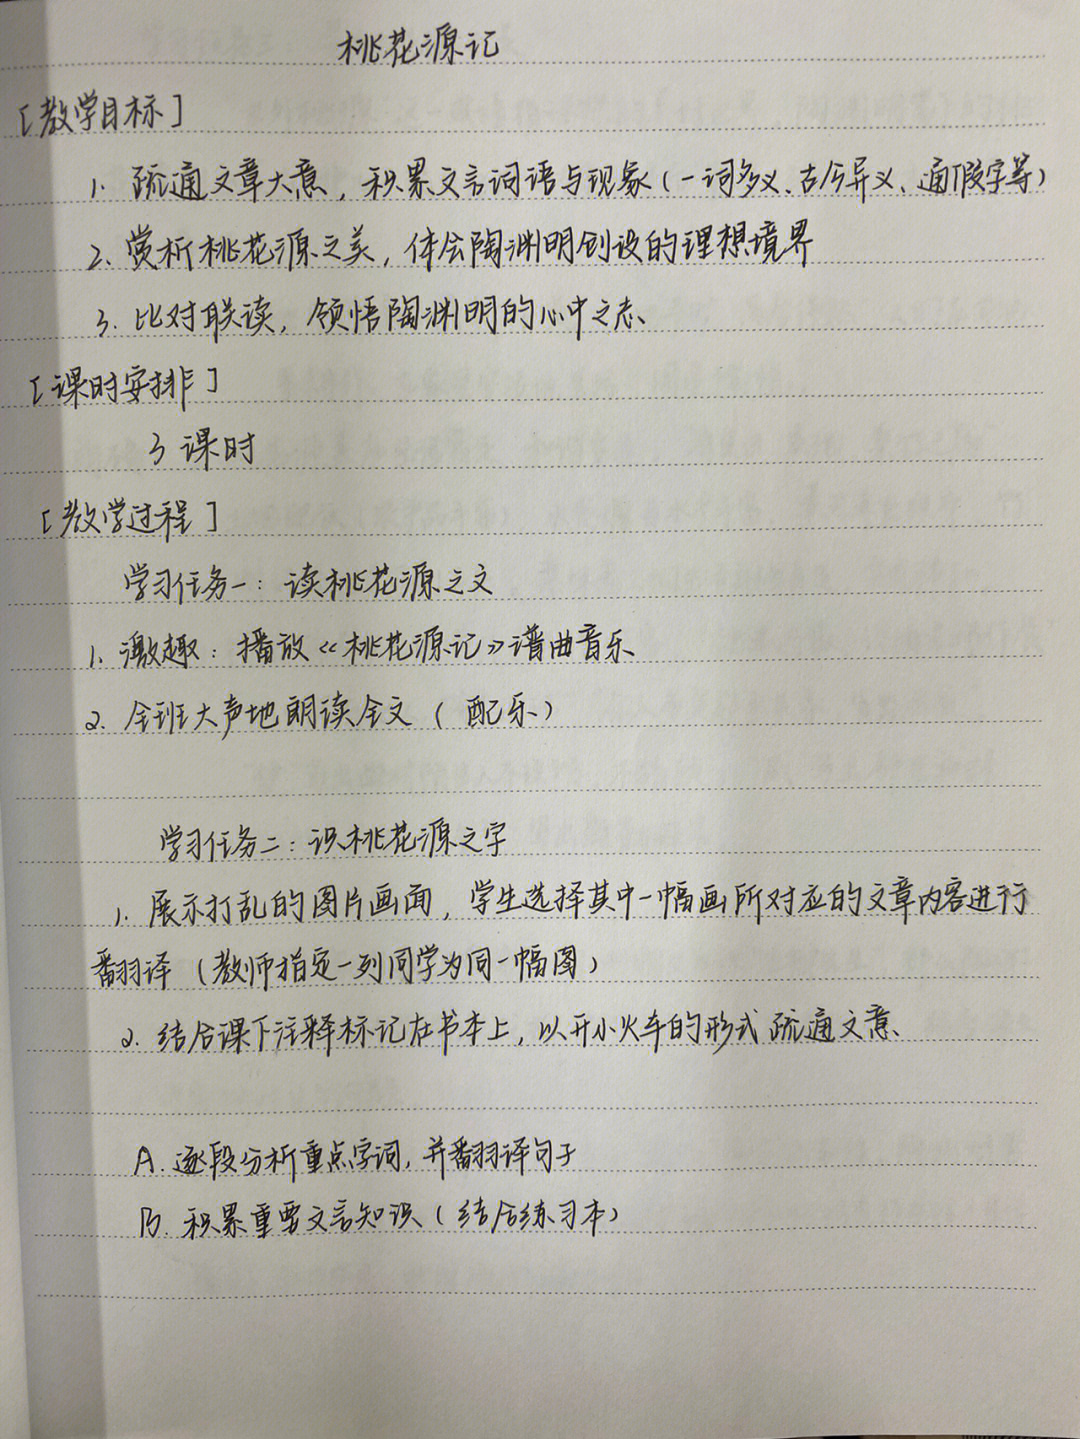 桃花源记
[教学目标]
1. 疏通文章大意，积累文言词语与现象（一词多义、古今异义、通假字等）
2. 赏析桃花源之美，体会陶渊明创设的理想境界
3. 比对联读，领悟陶渊明的心中之志、
[课时安排]
3课时
[教学过程]
学习任务一：读桃花源之文
1. 激趣：播放《桃花源记》谱曲音乐
2. 全班大声地朗读全文（配乐）
学习任务二：识桃花源之字
1. 展示打乱的图片画面，学生选择其中一幅画所对应的文章内容进行
翻译（教师指定一列同学为同一幅图）
2. 结合课下注释标记在书本上，以开小火车的形式疏通文意、
A. 逐段分析重点字词，并翻译句子
B. 积累重要文言知识（结合练习本）